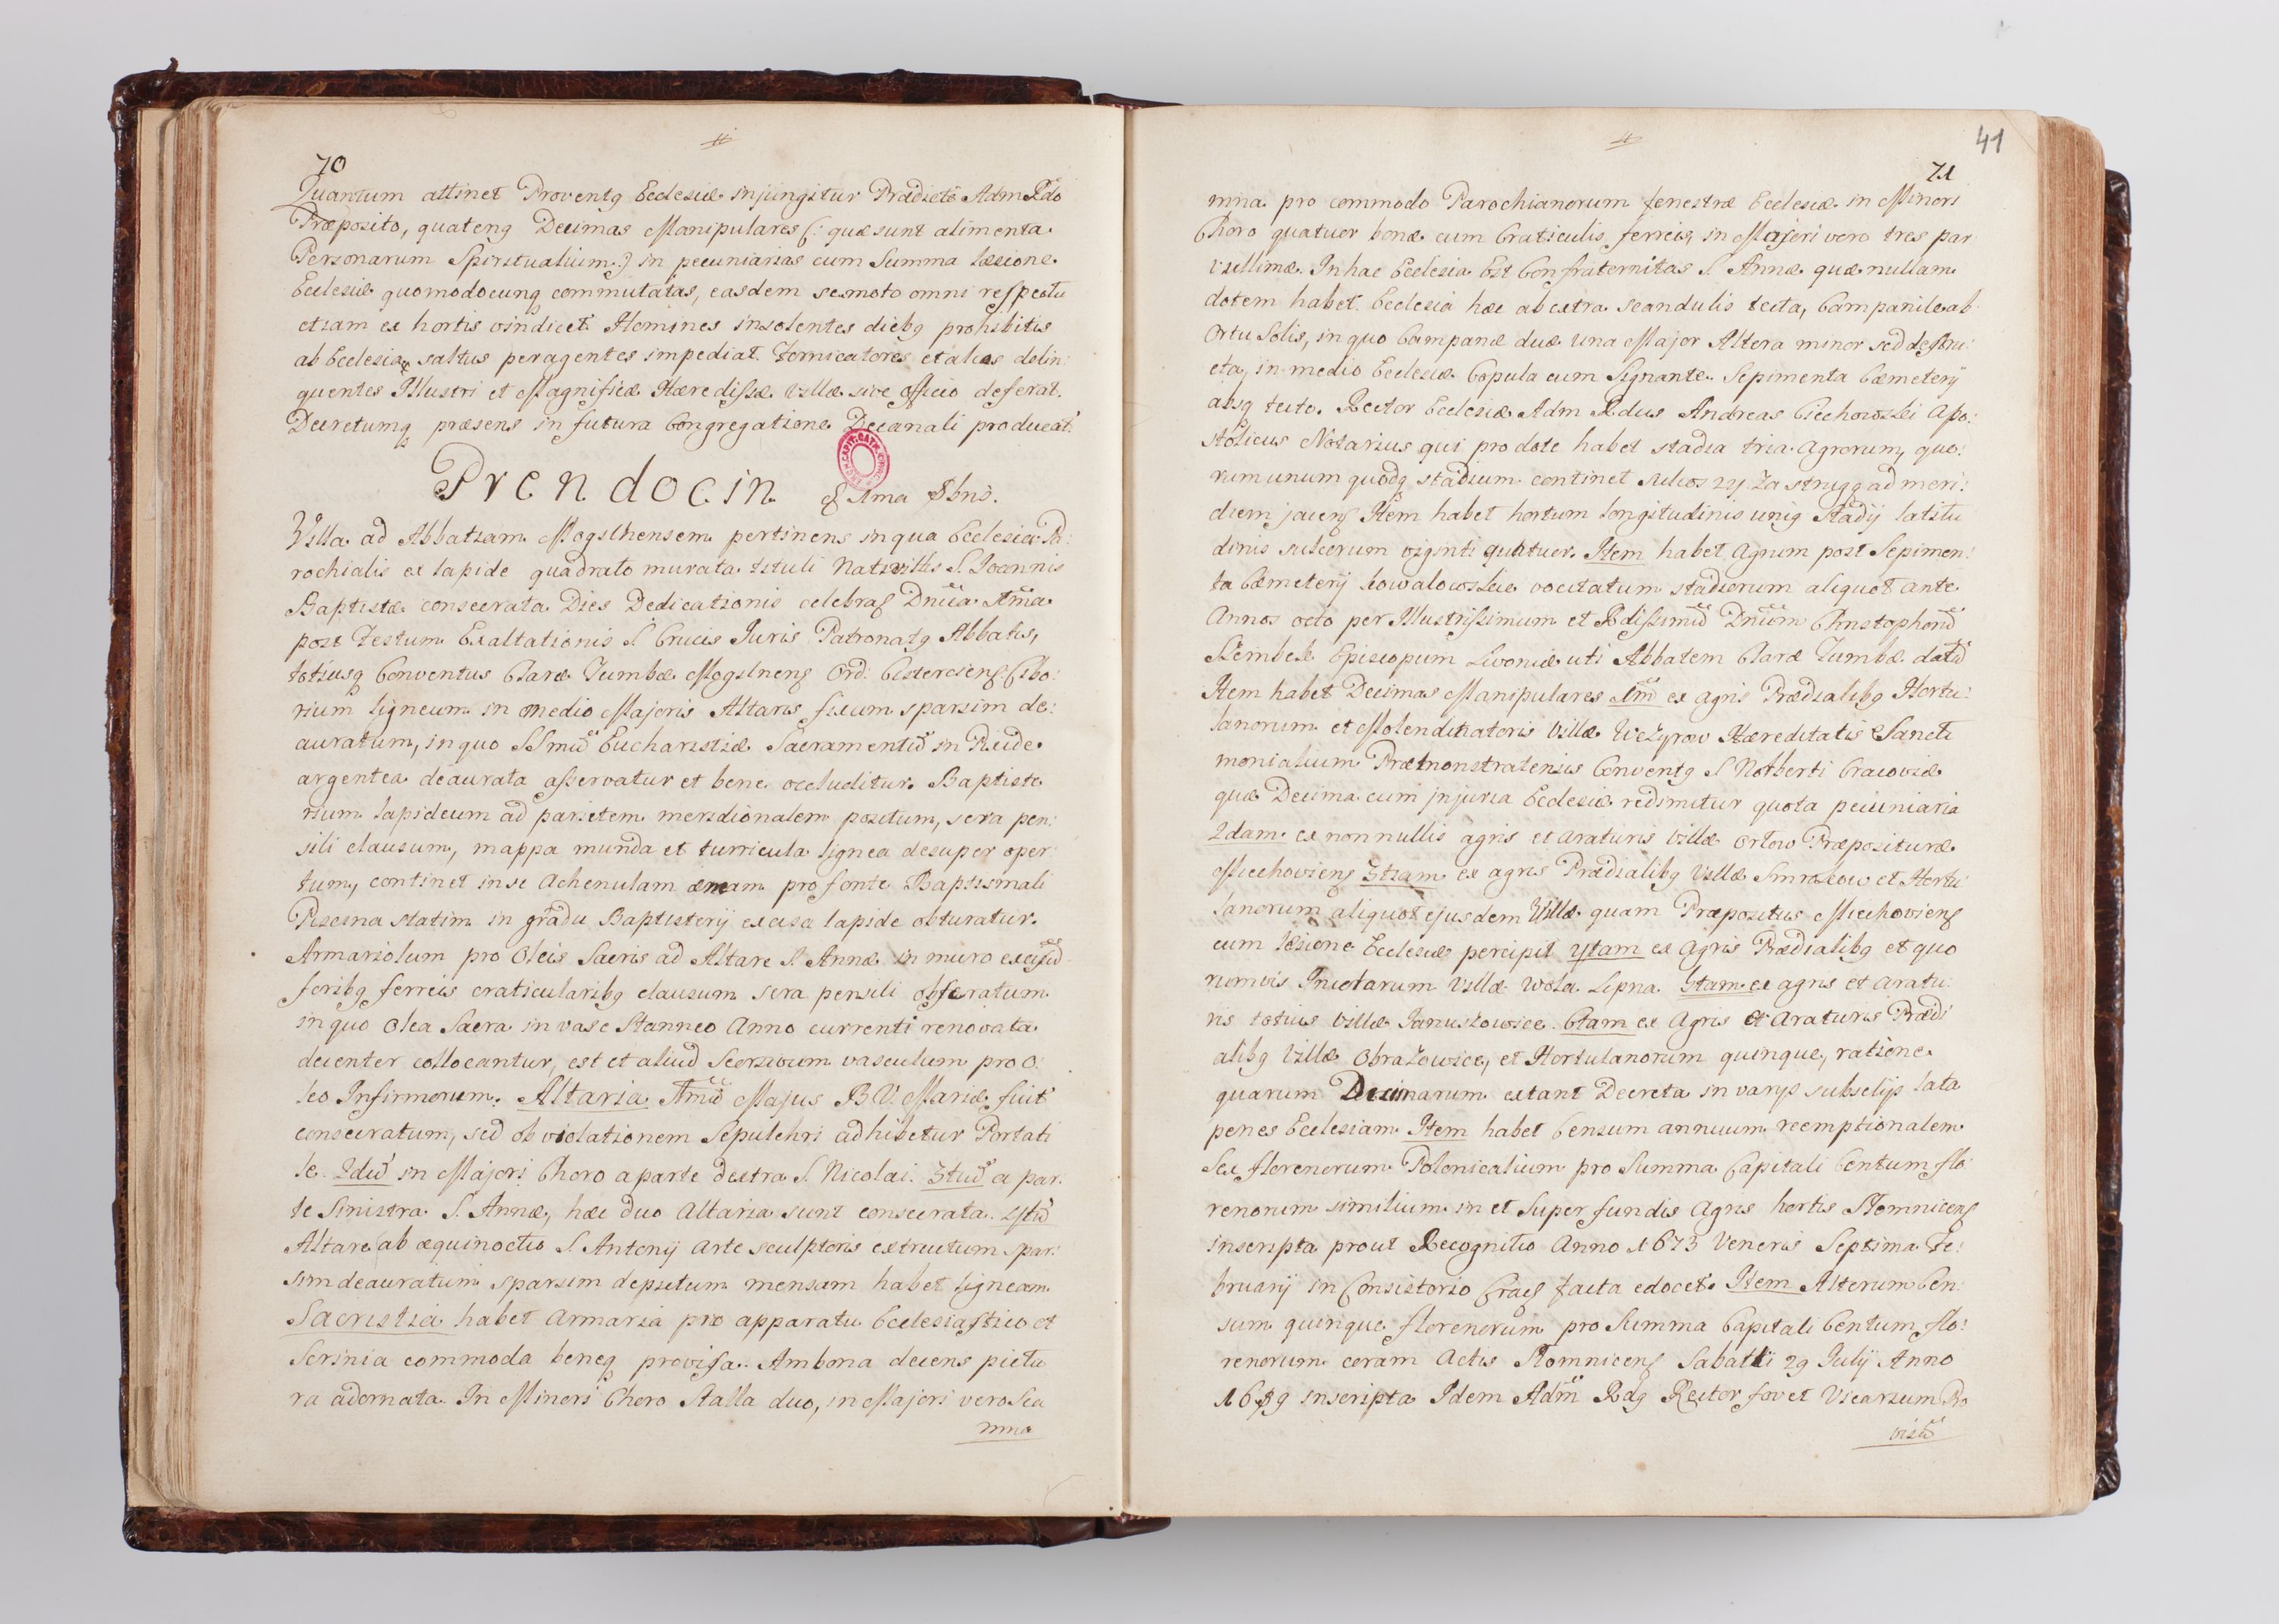 70
Quantum attinet Proventq Ecclesiæ injungitur Prædicto Adm Rdo
Præposito, quatenq Decimas Manipulares (: quæ sunt alimenta
Personarum Spiritualium :) in pecuniarias cum Summa læsione
Ecclesiæ quomodocunq commutatas, easdem semoto omni respectu
etiam ex hortis vindicet. Homines insolentes diebq prohibitis
ab Ecclesia saltus peragentes impediat. Fornicatores et alios delin:
quentes Illustri et Magnificæ Hæredissæ Villæ sive Officio deferat.
Decretumq præsens in futura Congregatione Decanali producat.
Prendocin 1ma 8bris.
Villa ad Abbatiam Mogilnensem pertinens in qua Ecclesia Pa:
rochialis ex lapide quadrato murata tituli Nativittis S. Joannis
Baptistæ consecrata Dies Dedicationis celebraq Dnica 1ma
post Festum Exaltationis S. Crucis Juris Patronatq Abbatis,
totiusq Conventus Claræ Tumbæ Mogilnenq Ord: Cisterciensq Cibo:
rium ligneum in medio Majoris Altaris fixum sparsim de:
auratum, in quo SSmū Eucharistiæ Sacramentū in Pixide
argentea deaurata asservatur et bene occluditur. Baptiste
rium lapideum ad parietem meridionalem positum, sera pen:
sili clausum, mappa munda et turricula lignea desuper oper
tum, continet in se Achenulam æneam pro fonte Baptismali
Piscina statim in gradu Baptisterij excisa lapide obturatur.
Armariolum pro Oleis Sacris ad Altare S. Annæ in muro excisū
foribq ferreis craticularibq clausum sera pensili obseratum
in quo Olea Sacra in vase Stanneo Anno currenti renovata
decenter collocantur, est et aliud Seorsivum vasculum pro O:
leo Infirmorum. Altaria 1mū Majus B.V. Mariæ fuit
consecratum, sed ob violationem Sepulchri adhibetur Portati
le. 2dū in Majori Choro a parte dextra S. Nicolai. 3tiū a par:
te Sinistra S. Annæ, hæc duo Altaria sunt consecrata. 4tū
Altare ab æquinoctio S. Antonij Arte sculptoris extructum spar:
sim deauratum sparsim depictum mensam habet ligneam
Sacristia habet Armaria pro apparatu Ecclesiastico et
Scrinia commoda beneq provisa. Ambona decens pictu
ra adornata. In Minori Choro Stalla duo, in Majori vero Sca
mna
41
71
mna pro commodo Parochianorum fenestræ Ecclesiæ in Minori
Choro quatuor bonæ cum Craticulis ferreis, in Majori vero tres par
vullimæ. In hac Ecclesia Est Confraternitas S. Annæ quæ nullam
dotem habet. Ecclesia hæc ab extra scandulis tecta, Campanile ab
Ortu Solis, in quo Campanæ duæ una Major Altera minor sed destru:
cta, in medio Ecclesiæ Copula cum Signante. Sepimenta Cæmeterij
absq tecto. Rector Ecclesiæ Adm Rdus Andreas Ciechowski Apo:
stolicus Notarius qui pro dote habet stadia tria Agrorum, quo:
rum unum quodq stadium continet sulcos 24 Za strugą ad meri:
diem jacenq Item habet hortum longitudinis uniq Stadij latitu
dinis sulcorum viginti quatuor. Item habet Agrum post Sepimen:
ta Cæmeterij kowalowskie vocitatum stadiorum aliquot ante
Annos octo per Illustrissimum et Rdissimū Dnūm Christophorū
Szembek Episcopum Livoniæ uti Abbatem Claræ Tumbæ datū
Item habet Decimas Manipulares 1mā ex agris Prædialibq Hortu:
lanorum et Molendinatoris Villæ Wezyrow Hæreditatis Sancti
monialium Præmonstratensis Conventq S. Norberti Cracoviæ
quæ Decima cum injuria Ecclesiæ redimitur quota pecuniaria
2dam ex nonnullis agris et araturis Villæ Orłow Præposituræ
Miechovienq 3tiam ex agris Prædialibq Villæ Smroków et Hortu
lanorum aliquot ejusdem Villæ quam Præpositus Miechovienq
cum læsione Ecclesiæ percipit 4tam ex Agris Prædialibq et quo
rumvis Inctarum Villæ Wola Lipna 5tam ex agris et aratu:
ris totius Villæ Januszowice. 6tam ex Agris et Araturis Prædi
alibq Villæ Obrazowice, et Hortulanorum quinque, ratione
quarum Decimarum extant Decreta in varijs subselijs lata
penes Ecclesiam Item habet Censum annuum reemptionalem
Sex florenorum Polonicalium pro Summa Capitali Centum flo
renorum similium in et Super fundis Agris hortis Słomnicenq
inscripta prout Recognitio Anno 1673 Veneris Septima Fe:
bruarij in Consistorio Cracq facta edocet. Item Alterum Cen:
sum quinque florenorum pro Summa Capitali Centum flo:
renorum coram Actis Słomnicenq Sabathi 29 Julij Anno
inscripta Idem Adm Rdq Rector fovet Vicarium Pro
visū